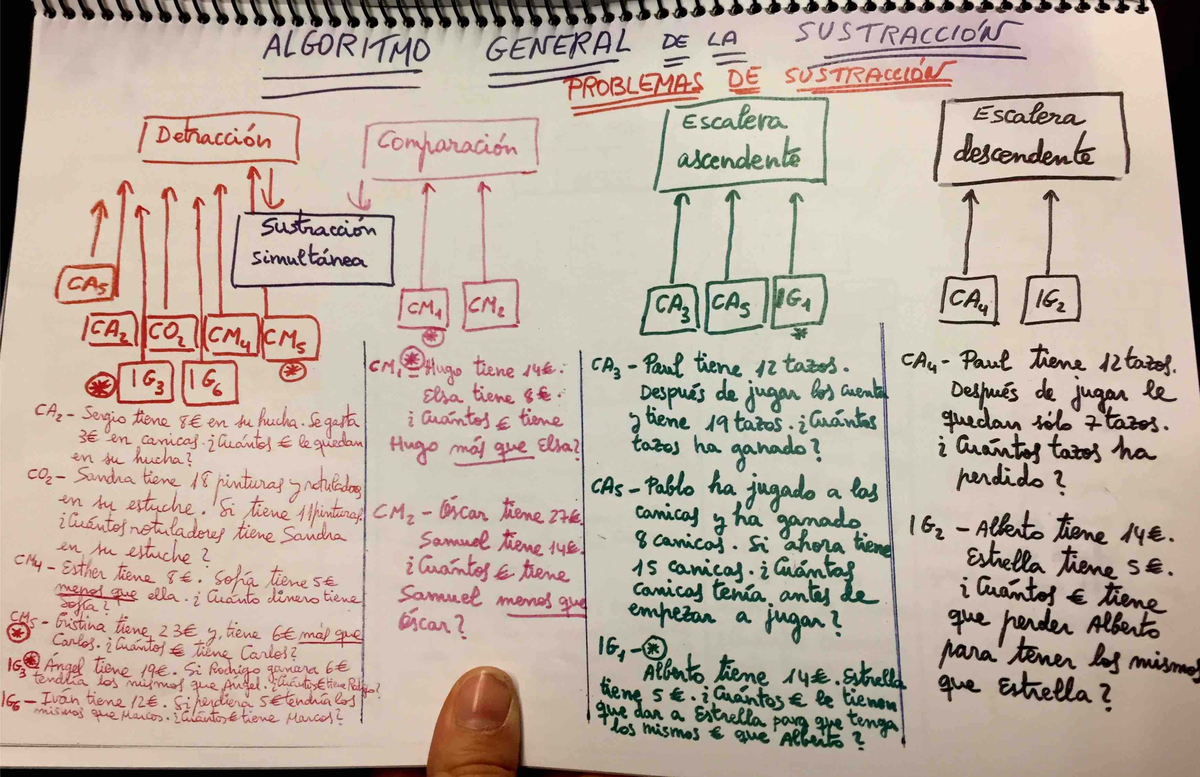 ALGORITMO GENERAL DE LA SUSTRACCIÓN
PROBLEMAS DE SUSTRACCIÓN
Detracción
Comparación
Escalera
ascendente
Escalera
descendente
Sustracción
simultánea
CA5
CA2
CO2
CM4
CM5
*
* IG3
IG6
CM1
*
CM2
CA3
CA5
IG1
*
CA4
IG2
CA2 - Sergio tiene 8€ en su hucha. Se gasta
3€ en canicas. ¿Cuántos € le quedan
en su hucha?
CO2 - Sandra tiene 18 pinturas y rotuladores
en su estuche. Si tiene 11 pinturas.
¿Cuántos rotuladores tiene Sandra
en su estuche?
CM4 - Esther tiene 8€. Sofía tiene 5€
menos que ella. ¿Cuánto dinero tiene
Sofía?
CM5 - Cristina tiene 23€ y, tiene 6€ más que
* Carlos. ¿Cuántos € tiene Carlos?
IG3 * Ángel tiene 19€. Si Rodrigo ganara 6€
tendría los mismos que Ángel. ¿Cuántos € tiene Rodrigo?
IG6 - Iván tiene 12€. Si perdiera 5€ tendría los
mismos que Marcos. ¿Cuántos € tiene Marcos?
CM1 * - Hugo tiene 14€.
Elsa tiene 8€.
¿Cuántos € tiene
Hugo más que Elsa?
CM2 - Óscar tiene 27€.
Samuel tiene 14€.
¿Cuántos € tiene
Samuel menos que
Óscar?
CA3 - Paul tiene 12 tazos.
Después de jugar los cuenta
y tiene 19 tazos. ¿Cuántos
tazos ha ganado?
CA5 - Pablo ha jugado a las
canicas y ha ganado
8 canicas. Si ahora tiene
15 canicas. ¿Cuántas
canicas tenía antes de
empezar a jugar?
IG1 - *
Alberto tiene 14€. Estrella
tiene 5€. ¿Cuántos € le tienen
que dar a Estrella para que tenga
los mismos € que Alberto?
CA4 - Paul tiene 12 tazos.
Después de jugar le
quedan sólo 7 tazos.
¿Cuántos tazos ha
perdido?
IG2 - Alberto tiene 14€.
Estrella tiene 5€.
¿Cuántos € tiene
que perder Alberto
para tener los mismos
que Estrella?